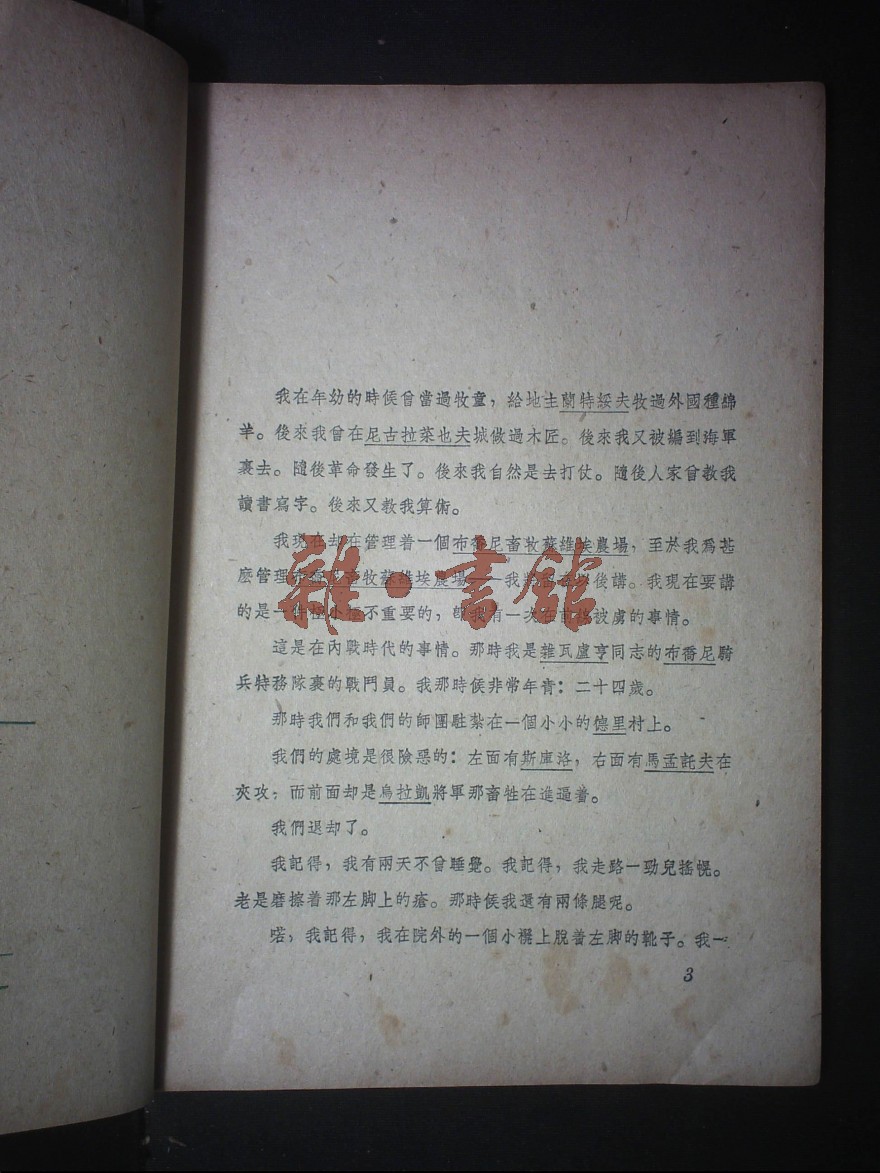 我在年幼的時候曾當過牧童，給地主蘭特綏夫牧過外國種綿
羊。後來我曾在尼古拉萊也夫城做過木匠。後來我又被編到海軍
裏去。隨後革命發生了。後來我自然是去打仗。隨後人家曾教我
讀書寫字。後來又教我算術。
我現在却在管理着一個布喬尼畜牧蘇維埃農場，至於我爲甚
麽管理布喬尼畜牧蘇維埃農場——我以後講。我現在要講
的是一件極小極不重要的，卽我有一次在前綫被虜的事情。
這是在內戰時代的事情。那時我是雜瓦盧亨同志的布喬尼騎
兵特務隊裏的戰鬥員。我那時候非常年靑：二十四歲。
那時我們和我們的師團駐紮在一個小小的德里村上。
我們的處境是很險惡的：左面有斯庫洛，右面有馬孟託夫在
夾攻；而前面却是烏拉凱將軍那畜牲在進逼着。
我們退却了。
我記得，我有兩天不曾睡覺。我記得，我走路一勁兒搖幌。
老是磨擦着那左脚上的瘡。那時候我還有兩條腿呢。
喏，我記得，我在院外的一個小櫈上脫着左脚的靴子。我一
3
雜·書館